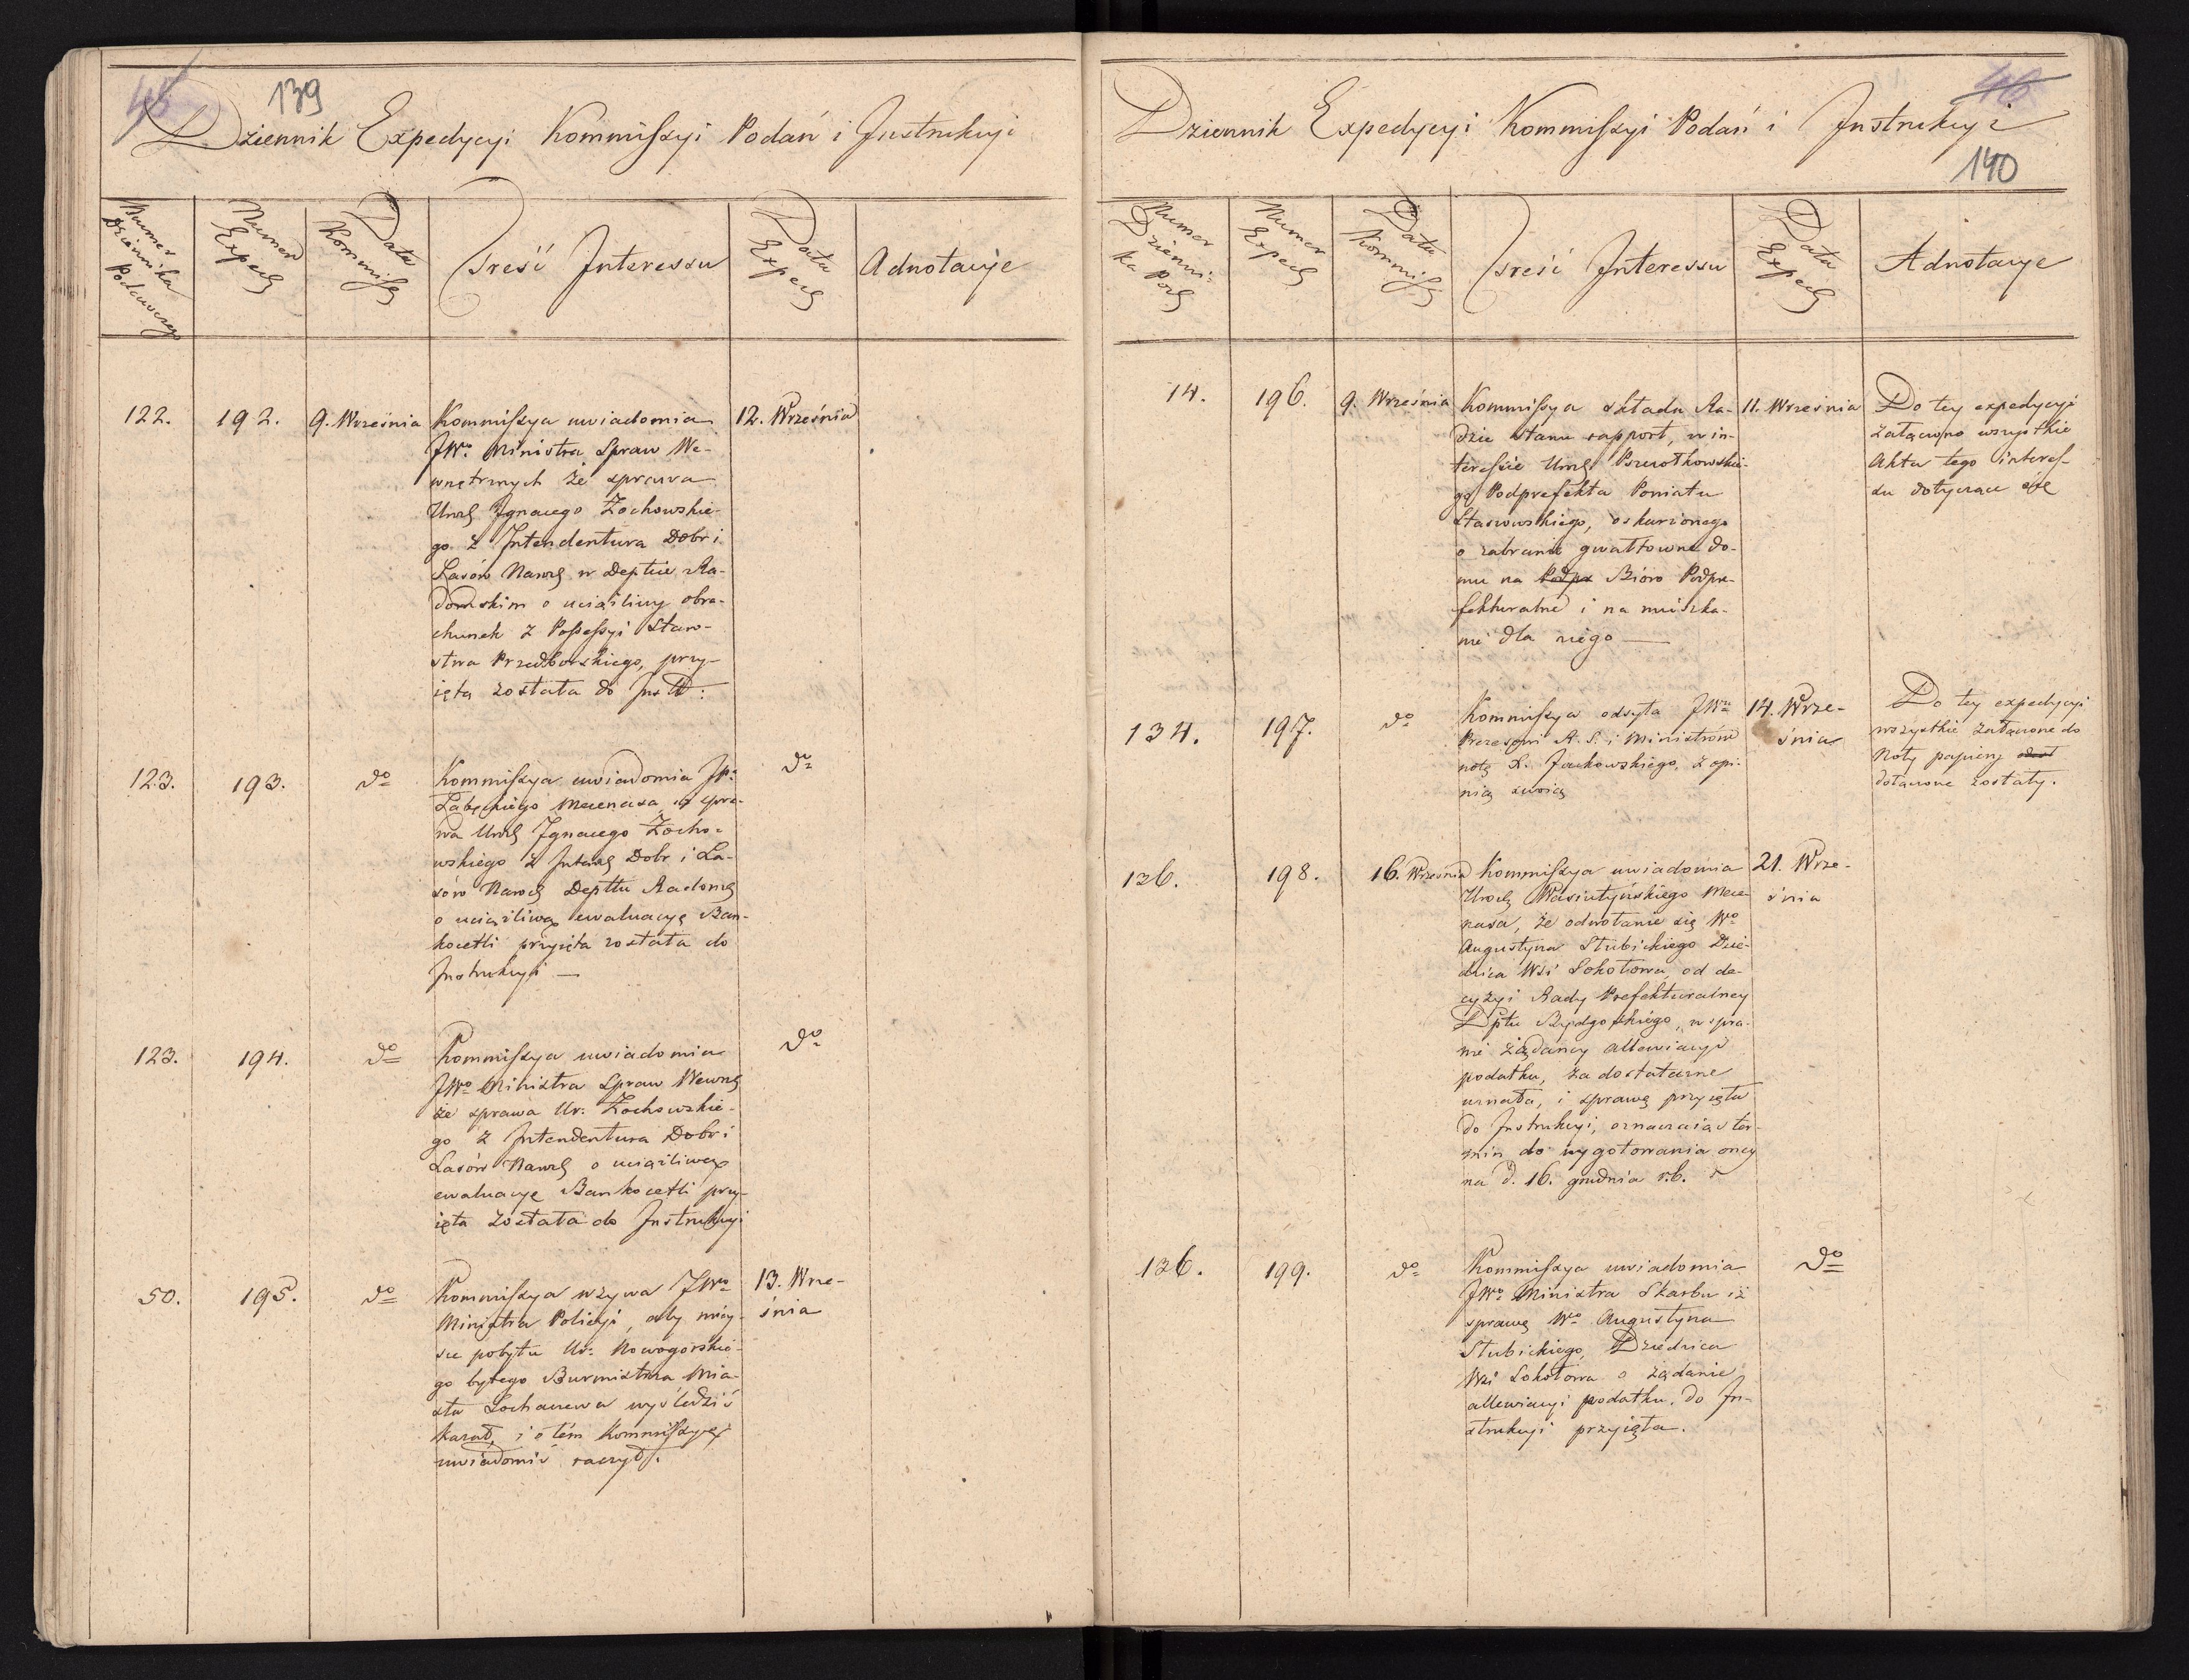 45
139
Dziennik Expedycyi Kommiſsyi Podań i Instrukcyi
Numer Dziennika Podawczego
Numer Exped
Data Kommiſs
Treść Interessu
Data Exped
Adnotacye
122.
192.
9. Września
Kommiſsya uwiadomia
JWo Ministra Spraw We-
wnętrznych że sprawa
Urod Ignacego Żochowskie-
go z Intendentura Dobr i
Lasów Narod w Deptcie Ra-
domskim o uciążliwy obra-
chunek z Poſseſsyi Staro-
stwa Przedborskiego, przy-
ięta została do Instr:
12. Września
123.
193.
do
Kommiſsya uwiadomia JPa
Łabęckiego Mecenasa, iż spra-
wa Urod Ignacego Żocho-
wskiego z Intend Dobr i La-
sów Narod Depttu Radoms
o uciążliwą ewaluacyę Ban-
kocetli przyięta została do
Instrukcyi —
do
123.
194.
do
Kommiſsya uwiadomia
JWo Ministra Spraw Wewnę
że sprawa Ur: Żochowskie-
go z Intendentura Dobr i
Lasów Narod o uciążliwą
ewaluacyę Bankocetli przy-
ięta została do Instrukcyi
do
50.
195.
do
Kommiſsya wzywa JWo
Ministra Policyi, aby miey-
sce pobytu Ur: Nowogorskie-
go byłego Burmistrza Mia-
sta Sochaczewa wyśledzić
kazał, i o tém Kommiſsyę
uwiadomić raczył.
13. Wrze-
śnia
46
Dziennik Expedycyi Kommiſsyi Podań i Instrukcyi
140
Numer Dzienni-
ka Pod
Numer Exped
Data Kommiſs
Treść Interessu
Data Exped
Adnotacye
14.
196.
9. Września
Kommiſsya składa Ra-
dzie Stanu rapport, w in-
tereſsie Urod Pszczołkowskie-
go Podprefekta Powiatu
Staszowskiego, oskarżonego
o zabranie gwałtowne do-
mu na Podpr Bióro Podpre-
fekturalne i na mieszka-
nie dla niego —
11. Września
Do tey expedycyi
załączono wszystkie
Akta tego intereſ-
su dotyczące się
134.
197.
do
Kommiſsya odsyła JWu
Prezesowi R. S. i Ministrów
notę X. Jachowskiego, z opi-
nią swoią
14. Wrze-
śnia
Do tey expedycyi
wszystkie załączone do
Noty papiery
dołączone zostały.
136.
198.
16. Września
Kommiſsya uwiadomia
Urodz Wasiutyńskiego Mece-
nasa, że odwołanie się Wo
Augustyna Słubickiego Dzie-
dzica Wsi Sokołowa, od de-
cyzyi Rady Prefekturalney
Dptu Bydgoskiego, w spra-
wie żądaney allewiacyi
podatku, za dostateczne
uznała, i sprawę przyięła
do Instrukcyi, oznaczaiąc ter-
min do wygotowania oney
na d. 16. grudnia r.b.
21. Wrze-
śnia
136.
199.
do
Kommiſsya uwiadomia
JWo Ministra Skarbu iż
sprawę Wo Augustyna
Słubickiego, Dziedzica
Wsi Sokołowa o żądanie
allewiacyi podatku, do In-
strukcyi przyięła.
do